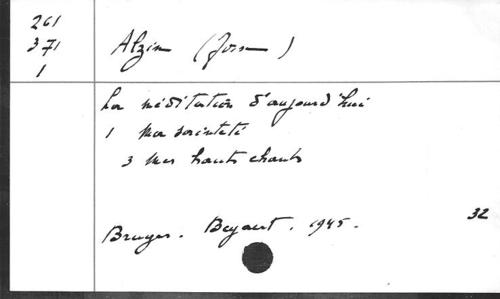 261
371
1
Alzin (Josse)
La méditation d'aujourd'hui
1 Ma sainteté
3 Mes hauts chants
Bruges. Beyaert. 1945.
32